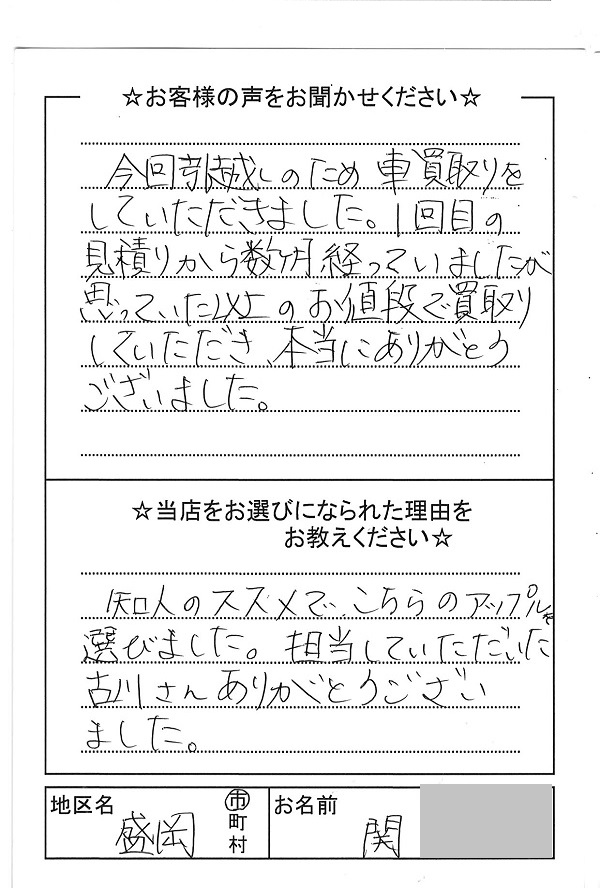 ☆お客様の声をお聞かせください☆
今回引越しのため車買取りを
していただきました。1回目の
見積りから数ヶ月経っていましたが
思っていた以上のお値段で買取り
していただき、本当にありがとう
ございました。
☆当店をお選びになられた理由を
お教えください☆
知人のススメで、こちらのアップルを
選びました。担当していただいた
古川さんありがとうござい
ました。
地区名 盛岡 市町村 お名前 関